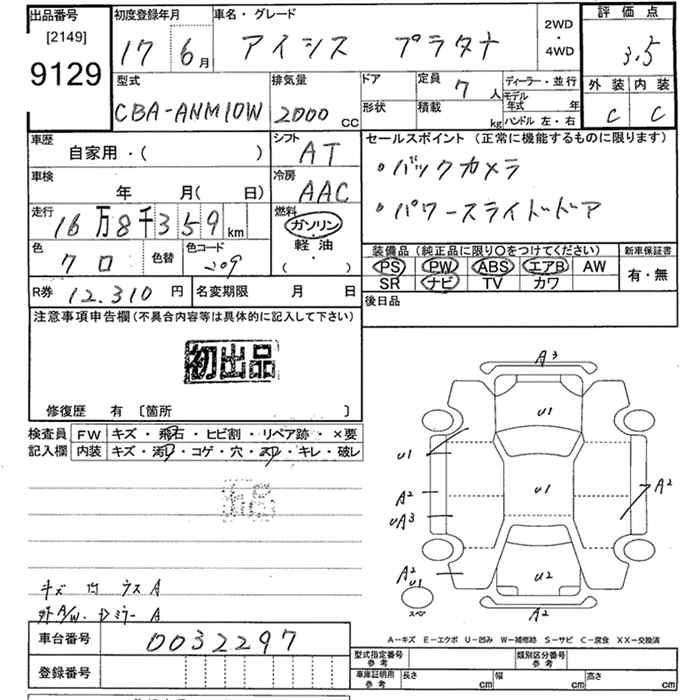 出品番号 初度登録年月 車名・グレード 評価点
[2149] 9129 17 6月 アイシス プラタナ 2WD・4WD 3.5
型式 排気量 ドア 定員 7人 ディーラー・並行 外装 内装
CBA-ANM10W 2000cc 形状 積載 kg モデル年式 年 C C
ハンドル 左・右
車歴 自家用・( ) シフト AT セールスポイント (正常に機能するものに限ります)
車検 年 月(日) 冷房 AAC ・バックカメラ
走行 16万8千359km 燃料 ガソリン ・パワースライドドア
軽油・( )
色 クロ 色替 色コード 209 装備品(純正品に限り○をつけてください) 新車保証書
PS PW ABS エアB AW 有・無
SR ナビ TV カワ
R券 12,310円 名変期限 月 日 後日品
注意事項申告欄(不具合内容等は具体的に記入して下さい)
初出品
修復歴 有 [箇所 ]
検査員 FW キズ・飛石・ヒビ割・リペア跡・×要
記入欄 内装 キズ・汚・コゲ・穴・スレ・キレ・破レ
出品
A3
U1
U1
U1
A2
A2
UA3
A2
U1
U2
スペア
A2
キズ 凹 ウス A
外A/W・Dミラー A
A-キズ E-エクボ U-凹み W-補修跡 S-サビ C-腐食 XX-交換済
車台番号 0032297
型式指定番号 参考 類別区分番号 参考
登録番号
車庫証明用 参考 長さ cm 幅 cm 高さ cm